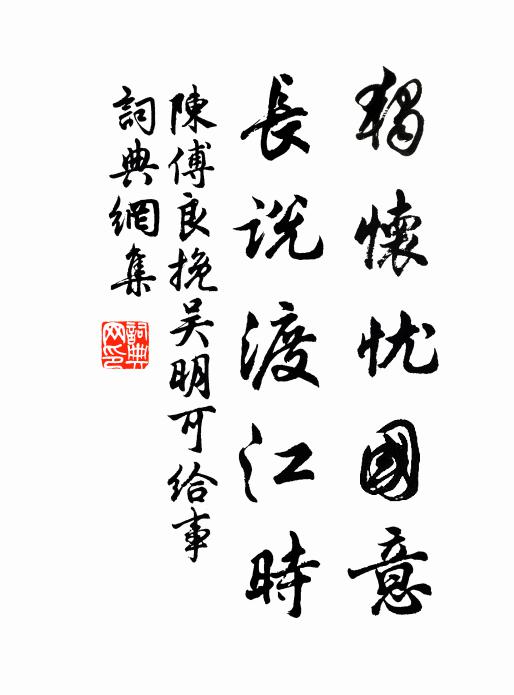 獨懷忧國意
長説渡江時
陳傅良挽吴明可給事
詞典網集
詞典
网印